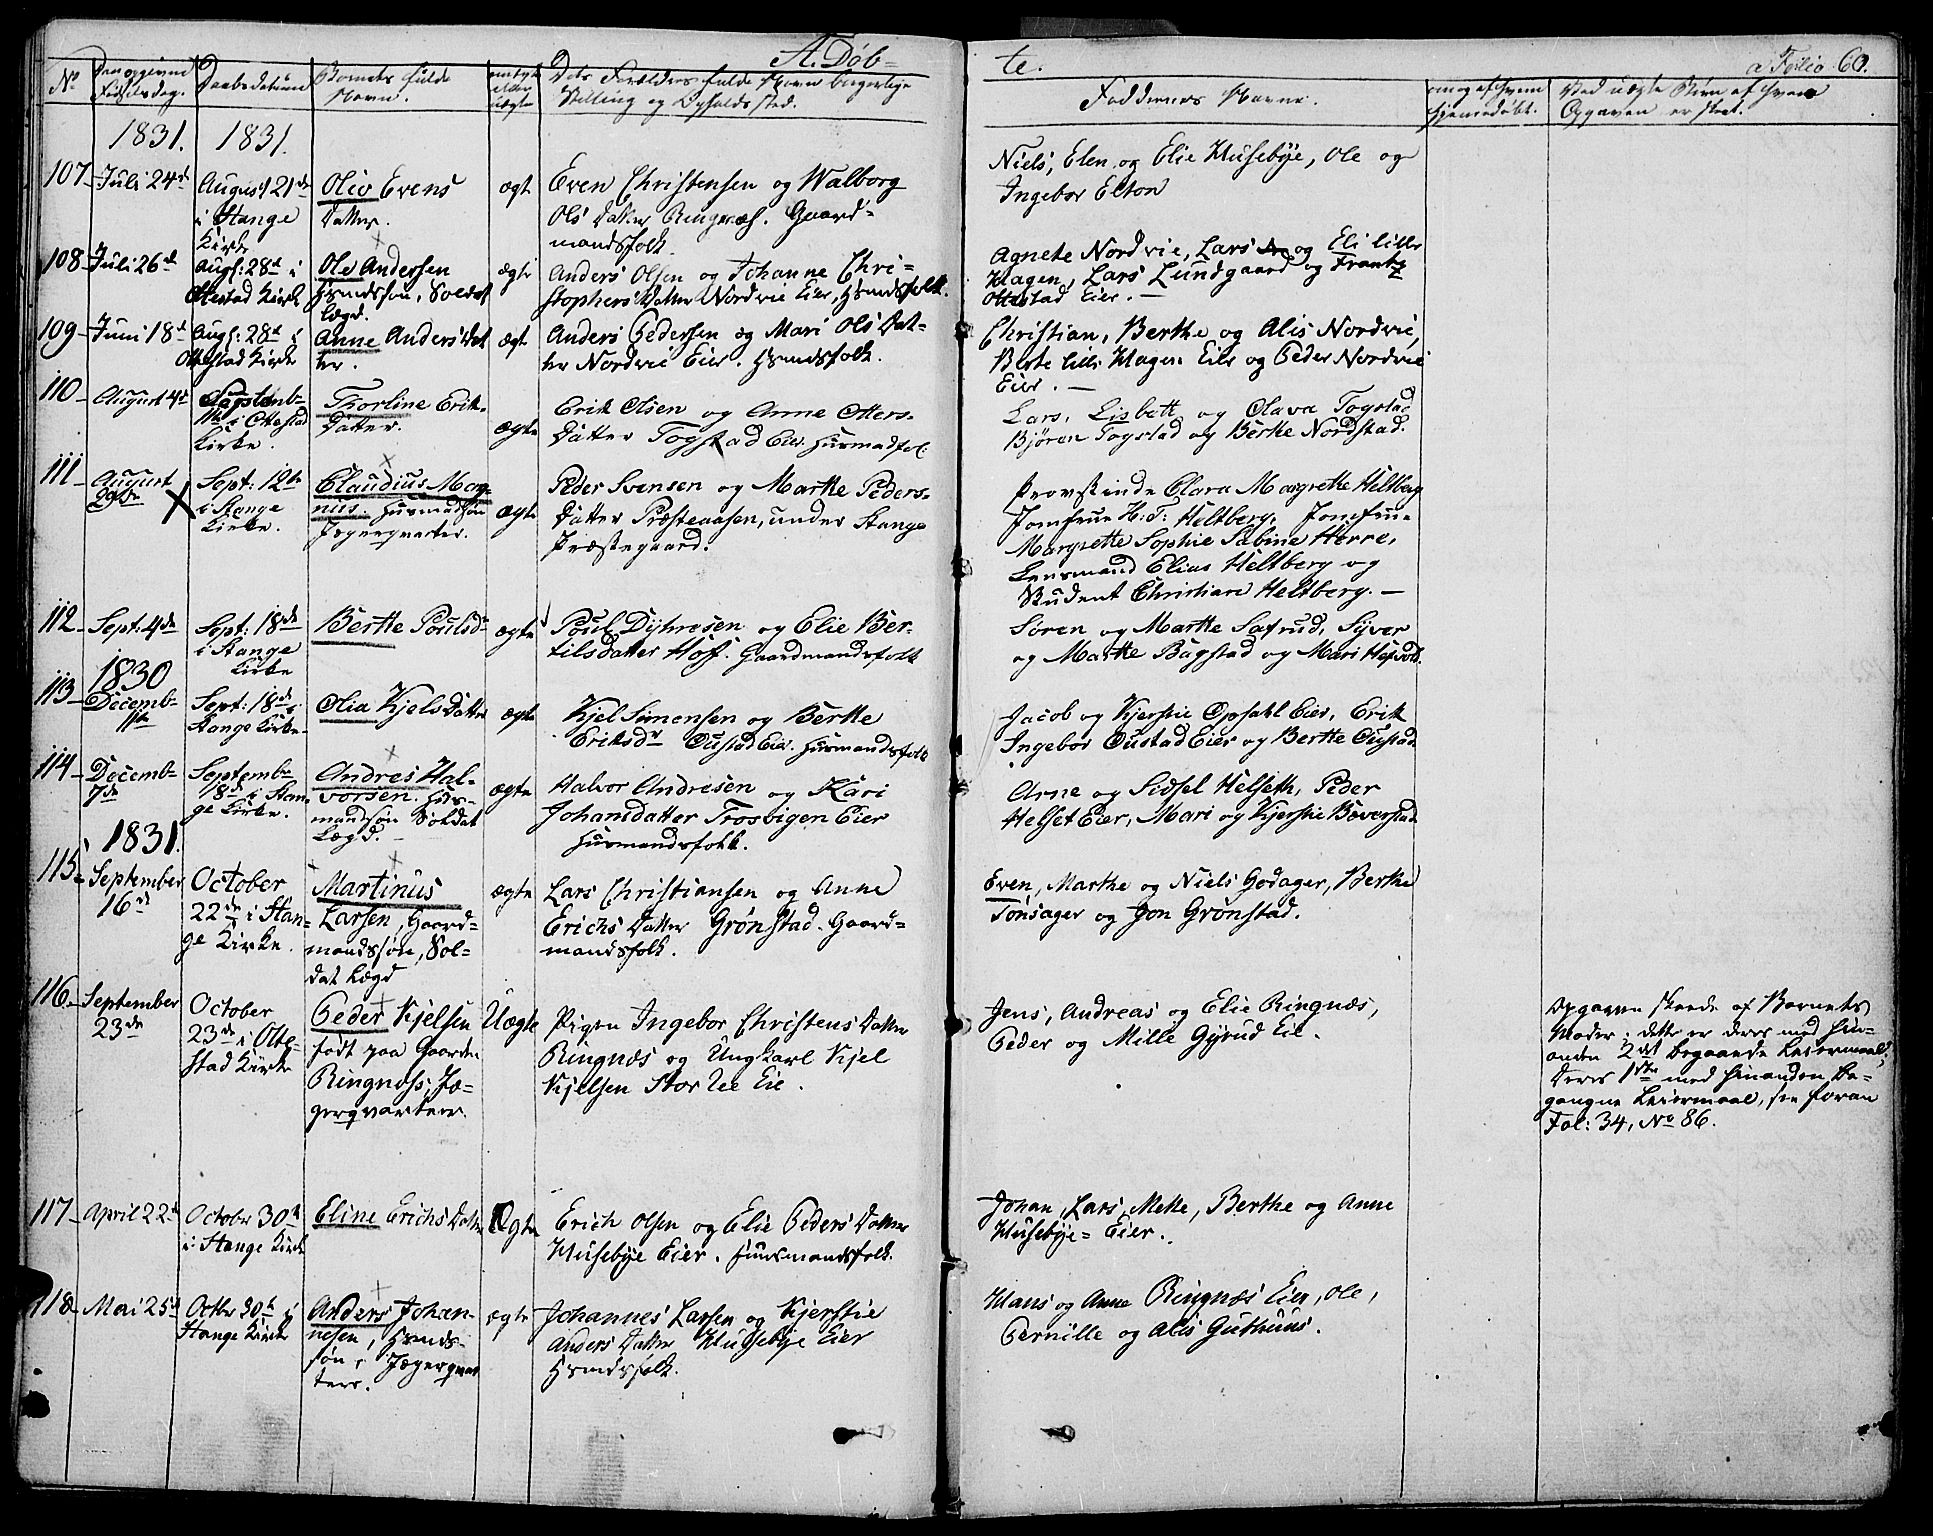 A. Døb-
te.
a Folio 60.
No
Den opgivne Fødselsdag.
Daabsdatum
Barnets fulde Navn.
om ægte eller uægte
Dets Forældres fulde Navn borgerlige Stilling og Opholdssted.
Faddernes Navne.
om og af hvem hjemmedøbt.
Ved uægte Børn af hvem Opgaven er skeet.
1831. 1831.
107 Juli 24de
August 21de
i Stange
Kirke
Oliv Evens
Datter.
ægte
Even Christensen og Walborg
Ols Datter Ringnæs. Gaard-
mandsfolk
Niels, Elen og Elie Husebÿe, Ole og
Ingebor Elton
108 Juli 26de
Augs: 28de i
Ottestad Kirke
Ole Andersen
Hsmdssøn, Soldat
Lægd.
ægte
Anders Olsen og Johanne Chri-
stophers Datter Nordvie Eier, Hsmdsfolk.
Agnete Nordvie, Lars og Eli lille
Hagen, Lars Lundgaard og Frantz
Ottestad Eier.
109 Juni 18de
Augs: 28de i
Ottestad Kirke
Anne Anders Dat
ter.
ægte
Anders Pedersen og Mari Ols Dat-
ter Nordvie Eier. Hsmdsfolk.
Christian, Berthe og Alis Nordvie,
Berte lille Hagen Eier og Peder Nordvie
Eier.
110 August 4de
Septemb-
11te i Ottestad
Kirke.
Thorline Erik-
Datter.
ægte
Erik Olsen og Anne Otters-
Datter Togstad Eier. Husmadfol.
Lars, Lisbeth og Olava Togstad
Bjøren Togstad og Berthe Nordstad.
111 August
29de
Sept: 12te
i Stange
Kirke.
Claudius Mag-
nus. Husmadsøn
Jægerqvarter.
ægte
Peder Svensen og Marthe Peders-
Datter Præsteaasen, under Stange
Præstegaard.
Provstinde Clara Margrethe Heltberg
Jomfrue H: T: Heltberg, Jomfrue
Margrethe Sophie Sabine Herre,
Lensmand Elias Heltberg og
Student Christian Heltberg.
112 Sept: 4de
Sept: 18de
i Stange
Kirke
Berthe Poulsdr
ægte
Poul Dÿhresen og Elie Ber-
tilsdatter Hof. Gaardmandsfolk
Søren og Marthe Saxrud, Siver
og Marthe Bagstad og Mari
1830
113 Decemb-
11te
Sept: 18de i
Stange Kirke
Olia Kjels Datter
ægte
Kjel Simensen og Berthe
Eriksdr Oustad Eier. Husmandsfolk
Jacob og Kjerstie Opsahl Eier, Erik
Ingebor Oustad Eier og Berthe Oustad
114 Decemb-
7de
Septemb-
18de i Stan-
ge Kirke.
Andres Hal-
vorsen. Hus-
mandsøn Soldat
Lægd.
ægte
Halvor Andresen og Kari
Johansdatter Trosvigen Eier
Husmandsfolk.
Arne og Sidsel Helseth, Peder
Helset Eier, Mari og Kjerstie Bæverstad
1831.
115 September
16de
October
22de i Stan-
ge Kirke.
Martinus
Larsen, Gaard-
mandssøn, Sol-
dat Lægd
ægte
Lars Christiansen og Anne
Erichs Datter Grönstad. Gaard-
mandsfolk.
Even, Marthe og Niels Godager, Berthe
Tønsager og Jon Grönstad.
116 September
23de
October
23de i Otte-
stad Kirke
Peder Kjelsen
født paa Gaarden
Ringnæs, Jæ-
gerqvarteer.
Uægte
Pigen Ingebor Christens Datter
Ringnæs og Ungkarl Kjel
Kjelsen Stor Ree Eie.
Jens, Andreas og Elie Ringnæs,
Peder og Mille Gÿrud Eie.
Opgaven skeede af Barnets
Moder; dette er deres med hin-
anden 2det begaaede Leiermaal.
Deres 1ste med hinanden be-
gangne Leiermaal, see foran
Fol: 34, No 86.
117 April 22de
October 30te
i Stange Kirke
Eline Erichs Datter
Ægte
Erich Olsen og Elie Peders Datter
Husebÿe Eier. Huusmandsfolk.
Johan, Lars, Mette, Berthe og Anne
Husebÿe- Eier.
118 Mai 25de
Octbr 30te i
Stange Kirke
Anders Johan-
nesen, Hsmds-
søn, Jægerqvar
teer.
ægte
Johannes Larsen og Kjerstie
Anders Datter Husebÿe Eier
Hsmdsfolk.
Hans og Anne Ringnæs Eier, Ole,
Pernille og Alis Guthuus.